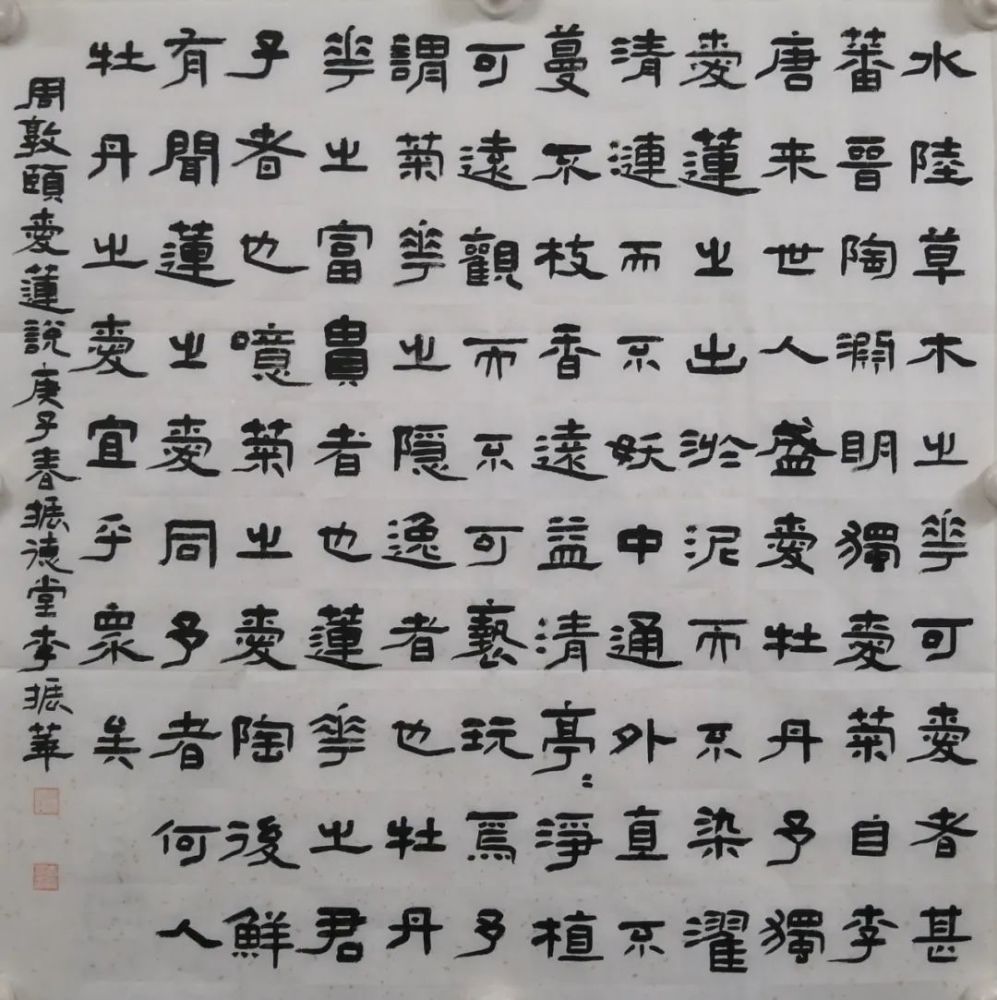 水陸草木之華可愛者甚
蕃晉陶淵明獨愛菊自李
唐来世人盛愛牡丹予獨
愛蓮之出淤泥而不染濯
清漣而不妖中通外直不
蔓不枝香遠益清亭〻淨植
可遠觀而不可褻玩焉予
謂菊華之隱逸者也牡丹
華之富貴者也蓮華之君
子者也噫菊之愛陶後鮮
有聞蓮之愛同予者何人
牡丹之愛宜乎眾矣
周敦頤愛蓮說庚子春振德堂李振華